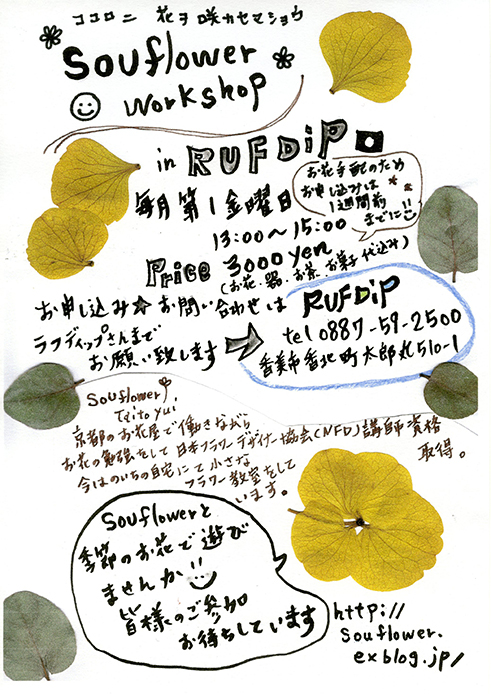 ココロニ 花ヲ咲カセマショウ
Souflower
Workshop
in RUFDiP
毎月第1金曜日
お花手配のため
お申し込みは
1週間前
までに
13:00〜15:00
Price 3000yen
(お花・器・お茶・お菓子代込み)
お申し込み☆お問い合わせは
ラフディップさんまで
お願い致します
RUFDiP
tel 0887-59-2500
香美市香北町太郎丸510-1
Souflower
Taito Yui.
京都のお花屋で働きながら
お花の勉強をして日本フラワーデザイナー協会(NFD)講師資格
取得。
今はのいちの自宅にて小さな
フラワー教室をして
います。
Souflowerと
季節のお花で遊び
ませんか!!
皆様のご参加
お待ちしています
http://
souflower.
exblog.jp/